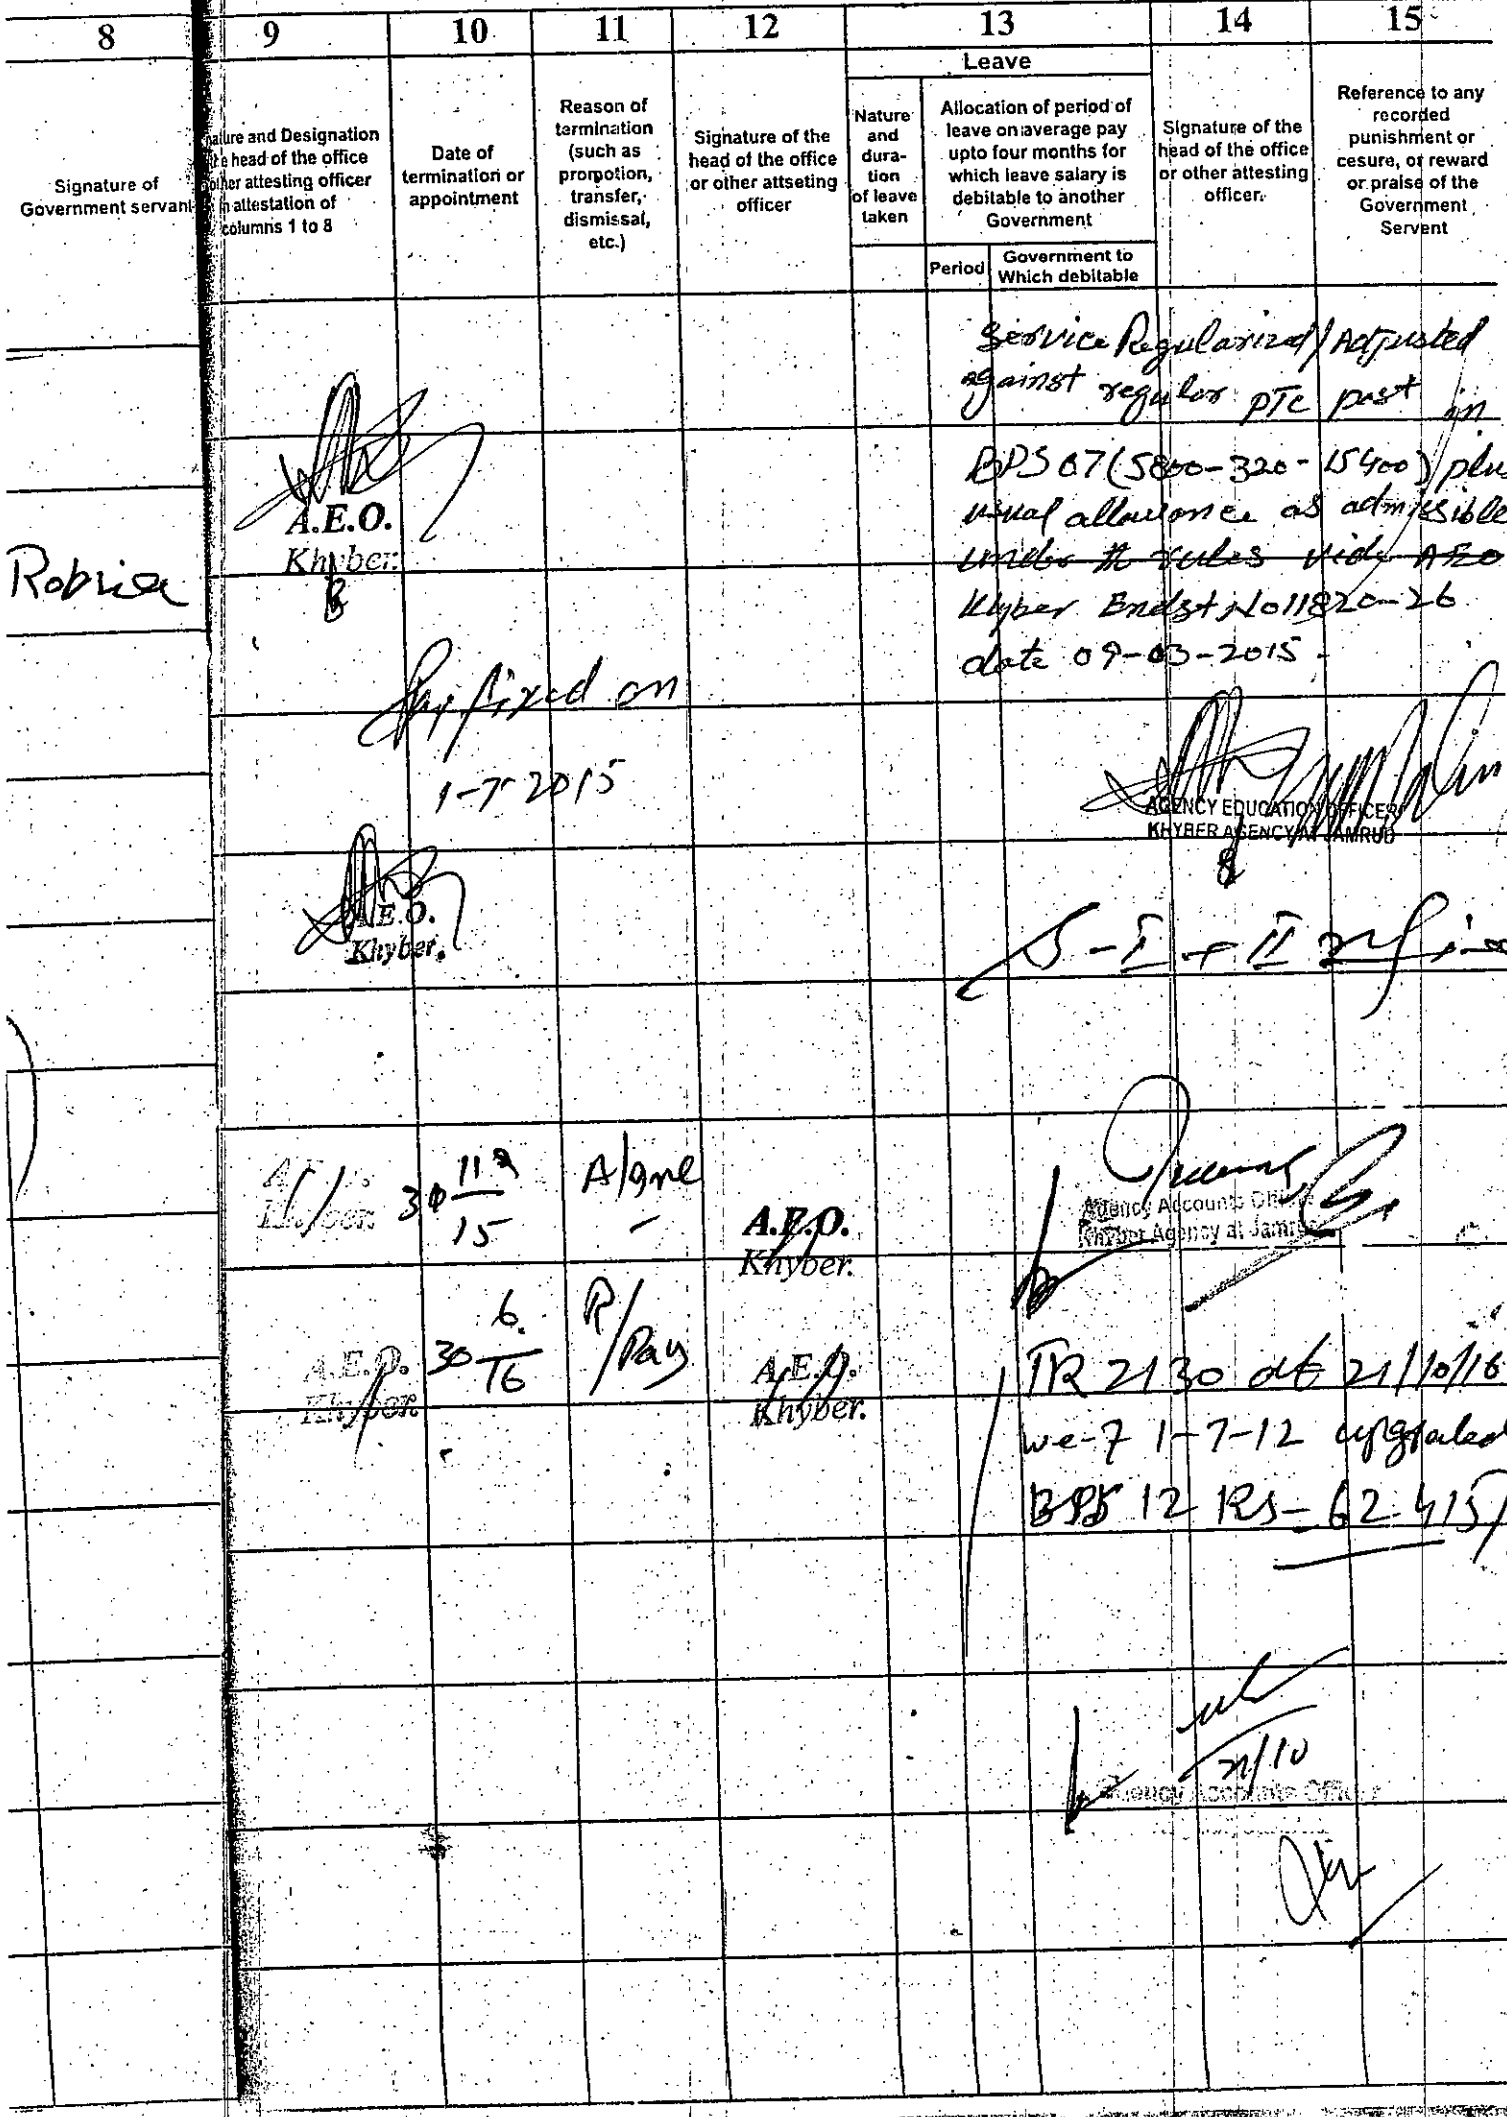 8 9 10 11 12 13 14 15
Leave
Signature of
Government servant
nature and Designation
the head of the office
other attesting officer
in attestation of
columns 1 to 8
Date of
termination or
appointment
Reason of
termination
(such as
promotion,
transfer,
dismissal,
etc.)
Signature of the
head of the office
or other attseting
officer
Nature
and
dura-
tion
of leave
taken
Allocation of period of
leave on average pay
upto four months for
which leave salary is
debitable to another
Government
Period
Government to
Which debitable
Signature of the
head of the office
or other attesting
officer.
Reference to any
recorded
punishment or
cesure, or reward
or praise of the
Government
Servent
Service Regularized/Adjusted
against regular PTC post in
BPS 07 (5800-320-15400) plus
usual allowance as admissible
under the rules vide AEO
Khyber Endst No 11820-26
date 09-03-2015.
A.E.O.
Khyber.
Robria
Pay fixed on
1-7-2015
AGENCY EDUCATION OFFICER
KHYBER AGENCY AT JAMRUD
A.E.O.
Khyber.
S-I + II
30 11 15
A.E.O.
Khyber.
Agency Accounts Officer
Khyber Agency at Jamrud
A.E.O.
Khyber.
30 6 16
R/Pay
A.E.O.
Khyber.
TR 2130 dt 21/10/16
w.e.f 1-7-12 upgraded
BPS 12 Rs- 62415/
21/10
Agency Accounts Officer